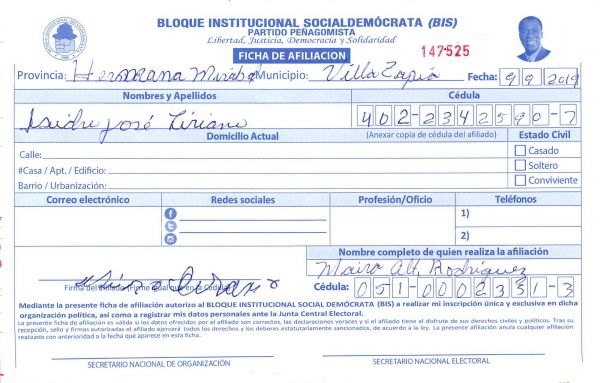 BLOQUE INSTITUCIONAL SOCIALDEMÓCRATA (BIS)
PARTIDO PEÑAGOMISTA
Libertad, Justicia, Democracia y Solidaridad
FICHA DE AFILIACION
147525
Provincia: Hermana Mirabal Municipio: Villa Tapia Fecha: 9/9/2019
Nombres y Apellidos Cédula
José Liriano 402-2342590-7
Domicilio Actual (Anexar copia de cédula del afiliado) Estado Civil
Calle: Casado
#Casa / Apt. / Edificio: Soltero
Barrio / Urbanización: Conviviente
Correo electrónico Redes sociales Profesión/Oficio Teléfonos
1)
2)
Nombre completo de quien realiza la afiliación
Maira Alt. Rodríguez
Firma del Afiliado (Firme igual que en la Cédula) Cédula: 051-0002331-3
Mediante la presente ficha de afiliación autorizo al BLOQUE INSTITUCIONAL SOCIAL DEMÓCRATA (BIS) a realizar mi inscripción única y exclusiva en dicha
organización política, así como a registrar mis datos personales ante la Junta Central Electoral.
La presente ficha de afiliación es válida si los datos ofrecidos por el afiliado son correctos, las declaraciones veraces y si el afiliado tiene el disfrute de sus derechos civiles y políticos. Tras su
recepción, sello y firmas autorizadas el afiliado ejercerá todos los derechos y los deberes estatutariamente sancionados, de acuerdo a la ley. La presente afiliación anula cualquier afiliación
realizada con anterioridad a la fecha que aparece en esta ficha.
SECRETARIO NACIONAL DE ORGANIZACIÓN SECRETARIO NACIONAL ELECTORAL